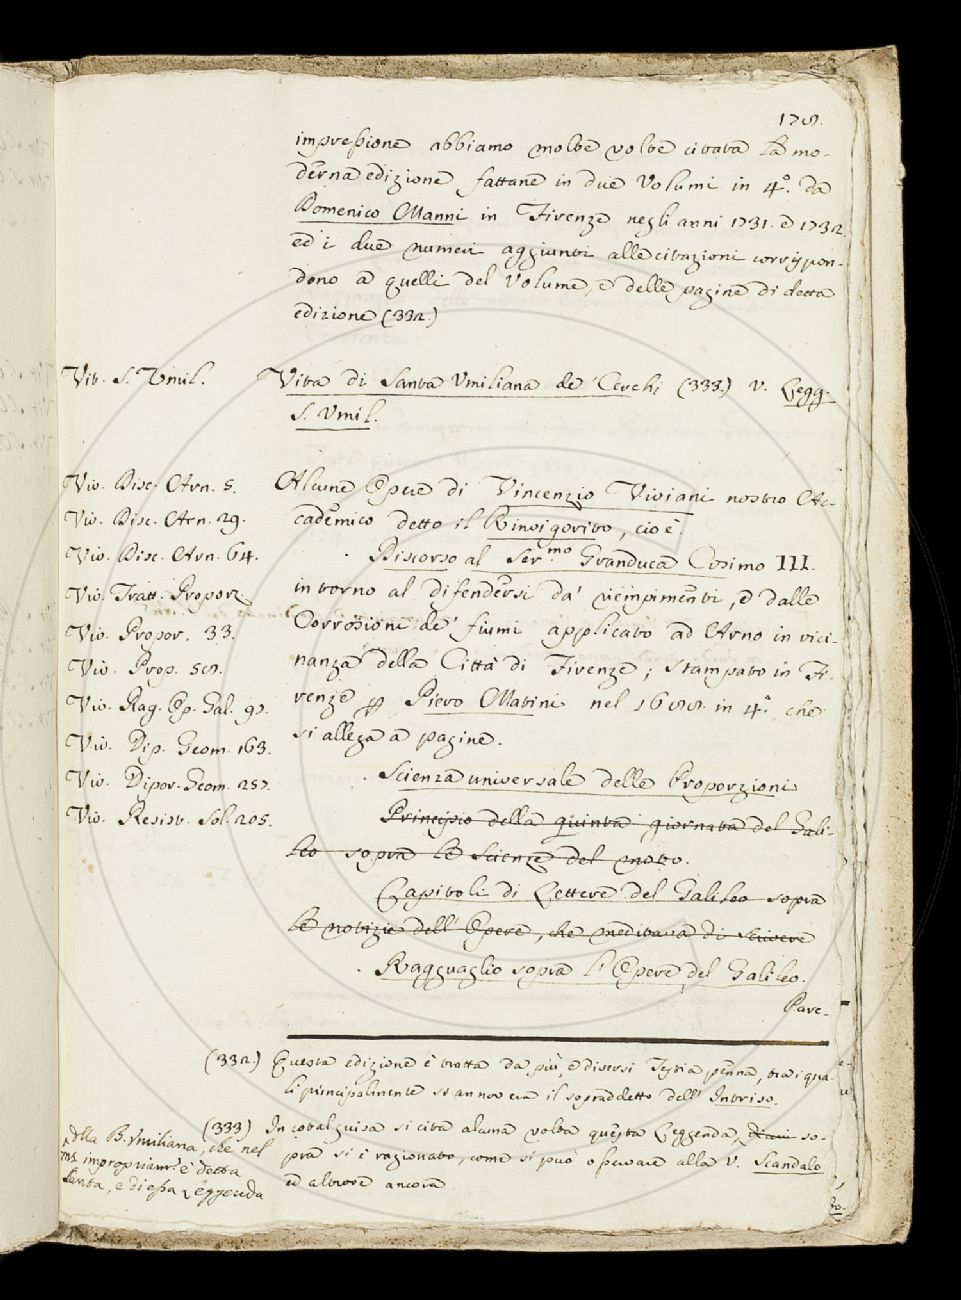 178.
impressione abbiamo molte volte citata la mo-
derna edizione fattane in due Volumi in 4.° da
Domenico Manni in Firenze negli anni 1731. e 1732.
ed i due numeri aggiunti alle citazioni corrispon-
dono a quelli del Volume, e delle pagine di detta
edizione (332.)
Vit. S. Umil. Vita di Santa Umiliana de' Cerchi (333.) v. Legg.
S. Umil.
Viv. Disc. Arn. 5. Alcune Opere di Vincenzio Viviani nostro Ac-
Viv. Disc. Arn. 29. cademico detto il Rinvigorito, cioè.
Viv. Disc. Arn. 64. Discorso al Ser.mo Granduca Cosimo III.
Viv. Tratt. Proporz. intorno al difendersi da' riempimenti, e dalle
Viv. Propor. 33. Corrosioni de' fiumi applicato ad Arno in vici-
Viv. Prop. nanza della Città di Firenze; stampato in Fi-
Viv. Rag. Op. Gal. renze Piero Matini nel 1688. in 4.° che
Viv. Dip. Geom. 163. si allega a pagine.
Viv. Dipor. Geom. 257. Scienza universale delle Proporzioni
Viv. Resist. Sol. 205. Principio della quinta giornata del Gali-
leo sopra le scienze del moto.
Capitoli di Lettere del Galileo sopra
le notizie dell' Opere, che meditava di scrivere
Ragguaglio sopra l' Opere del Galileo.
Pare-
(332.) Questa edizione è tratta da più, e diversi Testi a penna, tra i qua-
li principalmente si annovera il sopraddetto dell' Intriso.
(333) In cotal guisa si cita alcuna volta questa Leggenda, so-
pra si è ragionato, come si può osservare alla V. Scandalo
ed altrove ancora
della B. Umiliana, che nel
ms. impropriam.e è detta
Santa, e di essa Leggenda